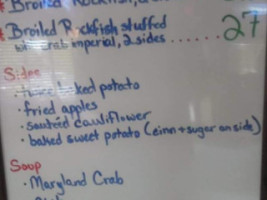 * Broiled Rockfish,
* Broiled Rockfish stuffed
w/ crab imperial, 2 sides ...... 27
Sides
• twice baked potato
• fried apples
• sauteéd cauliflower
• baked sweet potato (cinn + sugar on side)
Soup
• Maryland Crab